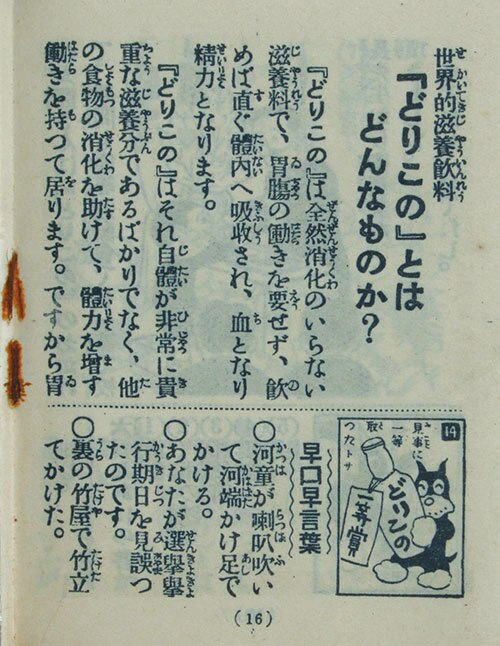 世界的滋養飲料
『どりこの』とは
どんなものか？
『どりこの』は全然消化のいらない
滋養料で、胃腸の働きを要せず、飲
めば直ぐ體內へ吸收され、血となり
精力となります。
『どりこの』はそれ自體が非常に貴
重な滋養分であるばかりでなく、他
の食物の消化を助けて、體力を增す
働きを持つて居ります。ですから胃
14
見事に
一等
取
つたトサ
どりこの
一等賞
早口早言葉
○河童が喇叭吹い
て河端かけ足で
かける。
○あなたが選擧擧
行期日を見誤つ
たのです。
○裏の竹屋で竹立
てかけた。
(16)